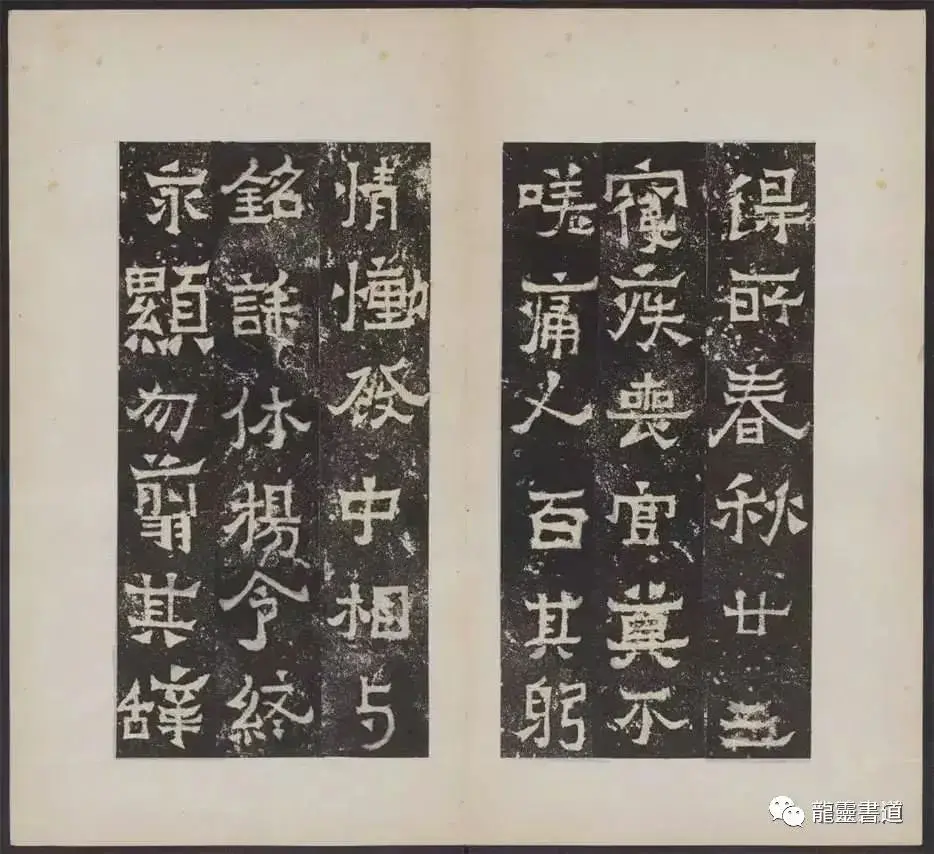 得所春秋廿五
寢疾喪官莫不
嗟痛人百其躬
情慟發中相与
銘誄休揚令終
永顯勿翦其辭
龍靈書道